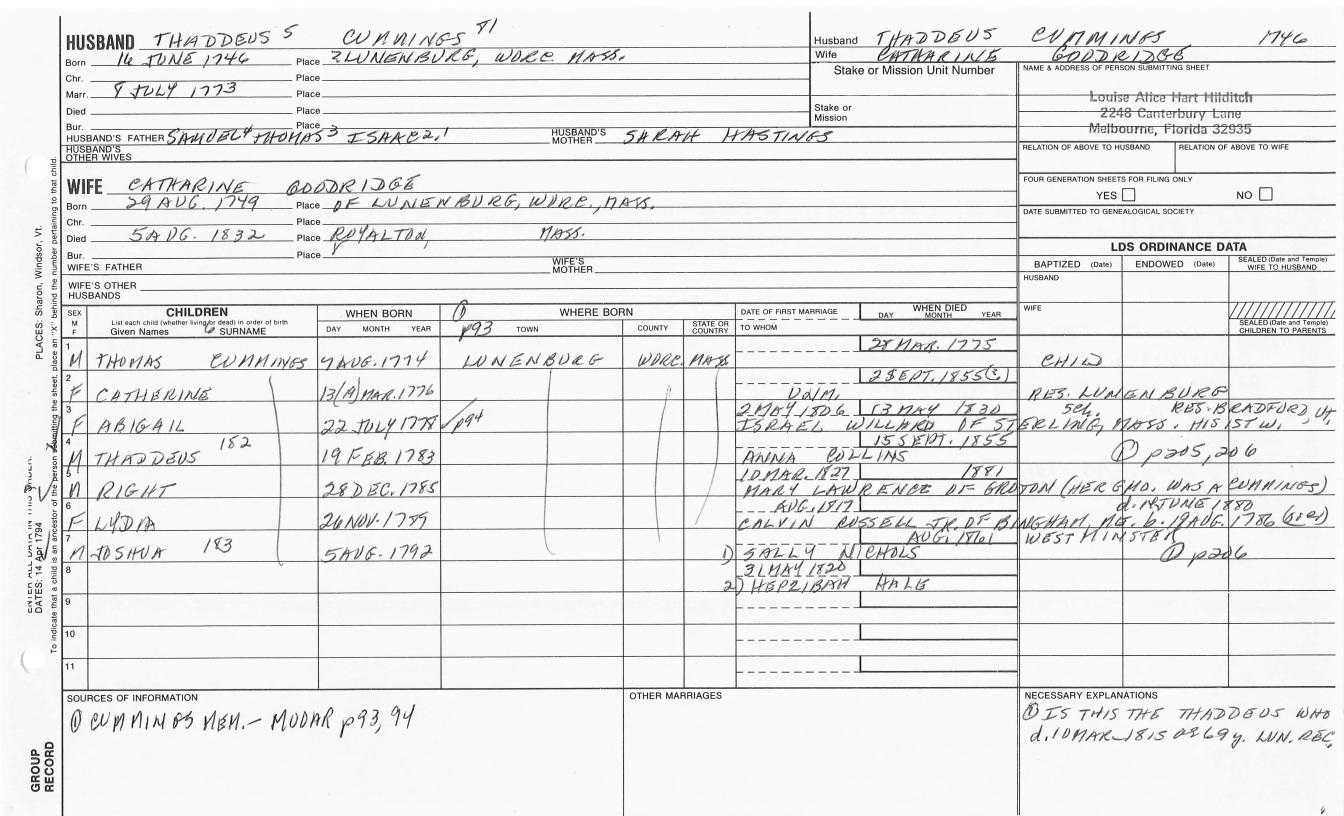 HUSBAND THADDEUS 5 CUMMINGS 81
Born 16 JUNE 1746 Place ?LUNENBURG, WORC. MASS.
Chr. Place
Marr. 8 JULY 1773 Place
Died Place
Bur. Place
HUSBAND'S FATHER SAMUEL4 THOMAS3 ISAAC2,1 HUSBAND'S MOTHER SARAH HASTINGS
HUSBAND'S OTHER WIVES
WIFE CATHARINE GOODRIDGE
Born 29 AUG. 1749 Place OF LUNENBURG, WORC., MASS.
Chr. Place
Died 5 AUG. 1832 Place ROYALTON, MASS.
Bur. Place
WIFE'S FATHER WIFE'S MOTHER
WIFE'S OTHER HUSBANDS
Husband THADDEUS CUMMINGS 1746
Wife CATHARINE GOODRIDGE
Stake or Mission Unit Number
Stake or Mission
NAME & ADDRESS OF PERSON SUBMITTING SHEET
Louise Alice Hart Hilditch
2248 Canterbury Lane
Melbourne, Florida 32935
RELATION OF ABOVE TO HUSBAND RELATION OF ABOVE TO WIFE
FOUR GENERATION SHEETS FOR FILING ONLY
YES NO
DATE SUBMITTED TO GENEALOGICAL SOCIETY
LDS ORDINANCE DATA
BAPTIZED (Date) ENDOWED (Date) SEALED (Date and Temple) WIFE TO HUSBAND
HUSBAND
WIFE
SEALED (Date and Temple) CHILDREN TO PARENTS
SEX M F
CHILDREN
List each child (whether living or dead) in order of birth
Given Names SURNAME
WHEN BORN
DAY MONTH YEAR
① p93
WHERE BORN
TOWN COUNTY STATE OR COUNTRY
DATE OF FIRST MARRIAGE
TO WHOM
WHEN DIED
DAY MONTH YEAR
1 28 MAR. 1775
M THOMAS CUMMINGS 7 AUG. 1774 LUNENBURG WORC. MASS. CHILD
2 2 SEPT. 1855(3)
F CATHERINE 13(A) MAR. 1776 UNM. RES. LUNENBURG
3 2 MAY 1806 13 MAY 1830 RES. BRADFORD, VT,
F ABIGAIL 22 JULY 1778 p94 ISRAEL WILLARD OF STERLING, MASS. HIS 1ST W.
4 182 15 SEPT. 1855
M THADDEUS 19 FEB. 1783 ANNA COLLINS ① p205, 206
5 10 MAR. 1827 1881
M RIGHT 28 DEC. 1785 MARY LAWRENCE OF GROTON (HER GMO. WAS A CUMMINGS)
6 AUG. 1817 d. 14 JUNE 1880
F LYDIA 26 NOV. 1789 CALVIN RUSSELL JR. OF BINGHAM, ME. b. 19 AUG. 1786
7 AUG. 1861 WESTMINSTER
M JOSHUA 183 5 AUG. 1792 1) SALLY NICHOLS ① p206
8 31 MAY 1820
2) HEPZIBAH HALE
9
10
11
SOURCES OF INFORMATION
① CUMMINGS MEM.- MUDAR p93, 94
OTHER MARRIAGES
NECESSARY EXPLANATIONS
① IS THIS THE THADDEUS WHO
d. 10 MAR 1815 ae 69 y. LUN. REC,
PLACES: Sharon, Windsor, Vt.
ENTER ALL DATA IN THIS ORDER:
DATES: 14 Apr 1794
To indicate that a child is an ancestor of the person submitting the sheet, place an "X" behind the number pertaining to that child.
GROUP RECORD